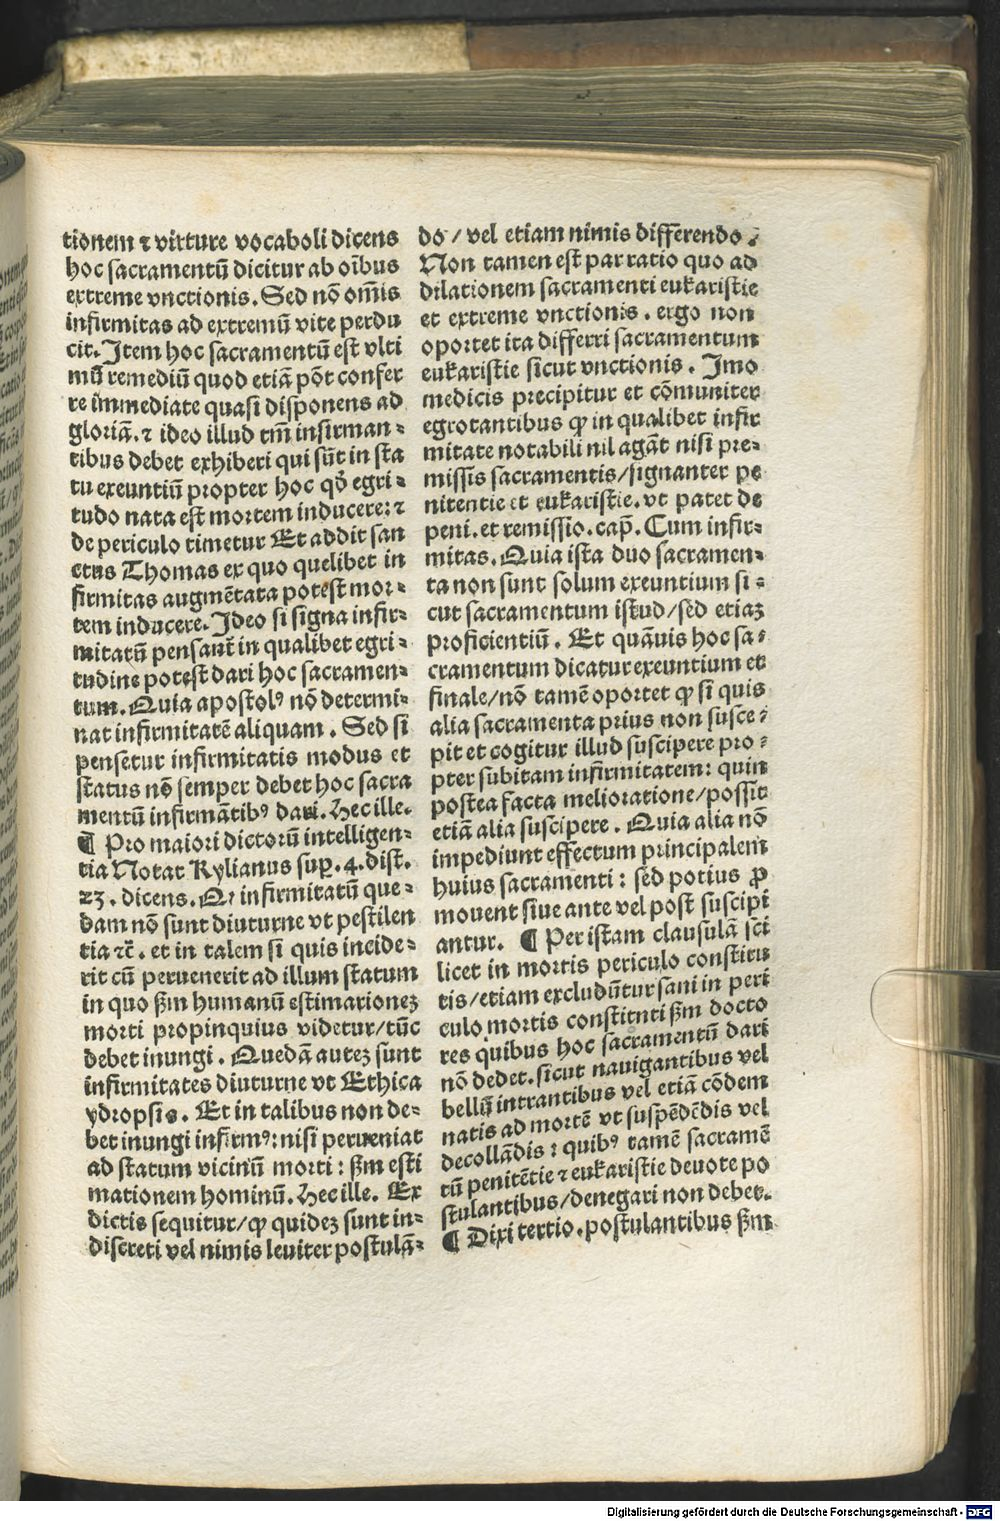 tionem ⁊ virture vocaboli dicens
hoc sacramentū dicitur ab oībus
extreme vnctionis. Sed nō om̄is
infirmitas ad extremū vite perdu
cit. Item hoc sacramentū est vlti
mū remediū quod etiā pōt confer
re immediate quasi disponens ad
gloriā. ⁊ ideo illud tm̄ infirman⸗
tibus debet exhiberi qui sūt in sta
tu exeuntiū propter hoc qꝺ̄ egri⸗
tudo nata est mortem inducere: ⁊
de periculo timetur Et addit san
ctus Thomas ex quo quelibet in
firmitas augmētata potest mor⸗
tem inducere. Ideo si signa infir⸗
mitatū pensant̄ in qualibet egri⸗
tudine potest dari hoc sacramen⸗
tum. Quia apostolꝰ nō determi⸗
nat infirmitatē aliquam. Sed si
pensetur infirmitatis modus et
status nō semper debet hoc sacra
mentū infirmātibꝰ dari. Hec ille.
¶ Pro maiori dictorū intelligen⸗
tia Notat Kylianus suꝑ. 4. dist.
23. dicens. Qꝛ infirmitatū que⸗
dam nō sunt diuturne vt pestilen
tia ⁊c̄. et in talem si quis incide⸗
rit cū peruenerit ad illum statum
in quo ẜm humanū estimationeꝫ
morti propinquius videtur/tūc
debet inungi. Quedā auteꝫ sunt
infirmitates diuturne vt Ethica
ydropsis. Et in talibus non de⸗
bet inungi infirmꝰ: nisi perueniat
ad statum vicinū morti: ẜm esti
mationem hominū. Hec ille. Ex
dictis sequitur/ꝙ quideꝫ sunt in⸗
discreti vel nimis leuiter postulā⸗
do/vel etiam nimis differendo.
Non tamen est par ratio quo ad
dilationem sacramenti eukaristie
et extreme vnctionis. ergo non
oportet ita differri sacramentum
eukaristie sicut vnctionis. Imo
medicis precipitur et cōmuniter
egrotantibus ꝙ in qualibet infir
mitate notabili nil agāt nisi pre⸗
missis sacramentis/signanter pe
nitentie et eukaristie. vt patet de
peni. et remissio. cap̄. Cum infir⸗
mitas. Quia ista duo sacramen⸗
ta non sunt solum exeuntium si⸗
cut sacramentum istud/sed etiaꝫ
proficientiū. Et quāuis hoc sa⸗
cramentum dicatur exeuntium et
finale/nō tamē oportet ꝙ si quis
alia sacramenta prius non susce⸗
pit et cogitur illud suscipere pro⸗
pter subitam infirmitatem: quin
postea facta melioratione/possit
etiā alia suscipere. Quia alia nō
impediunt effectum principalem
huius sacramenti: sed potius ꝓ
mouent siue ante vel post suscipi
antur. ¶ Per istam clausulā sci
licet in mortis periculo constitu
tis/etiam excludūtur sani in peri
culo mortis constituti ẜm docto
res quibus hoc sacramentū dari
nō debet. sicut nauigantibus vel
bellū intrantibus vel etiā cōdem
natis ad mortē vt suspēdēdis vel
decollādis: quibꝰ tamē sacramē
tū penitētie ⁊ eukaristie deuote po
stulantibus/denegari non debet.
¶ Dixi tertio. postulantibus ẜm
Digitalisierung gefördert durch die Deutsche Forschungsgemeinschaft - DFG